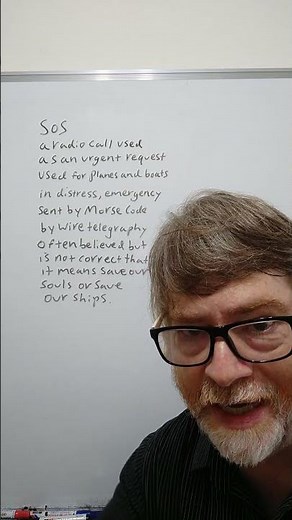 SOS
a radio call used
as an urgent request
Used for planes and boats
in distress, emergency
Sent by Morse Code
by wire telegraphy
Often believed but
is not correct that
it means save our
Souls or Save
Our Ships.